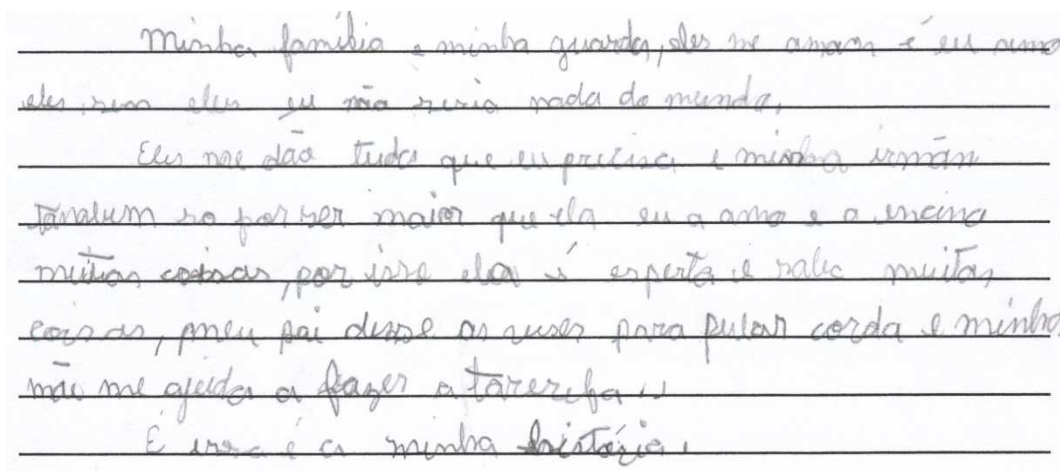 Minha família e minha guarda, eles me amam é eu amo
eles, sem eles eu não seria nada do mundo,
Eles me dão tudo que eu precisa e minha irmãn
só por ser maior que ela eu a amo e a encino
muitas coisas, por isso ela é esperta e sabe muitas
coisas, meu pai disse as vuses para pular corda e minha
mãe me ajuda a fazer a
E issa é a minha história.